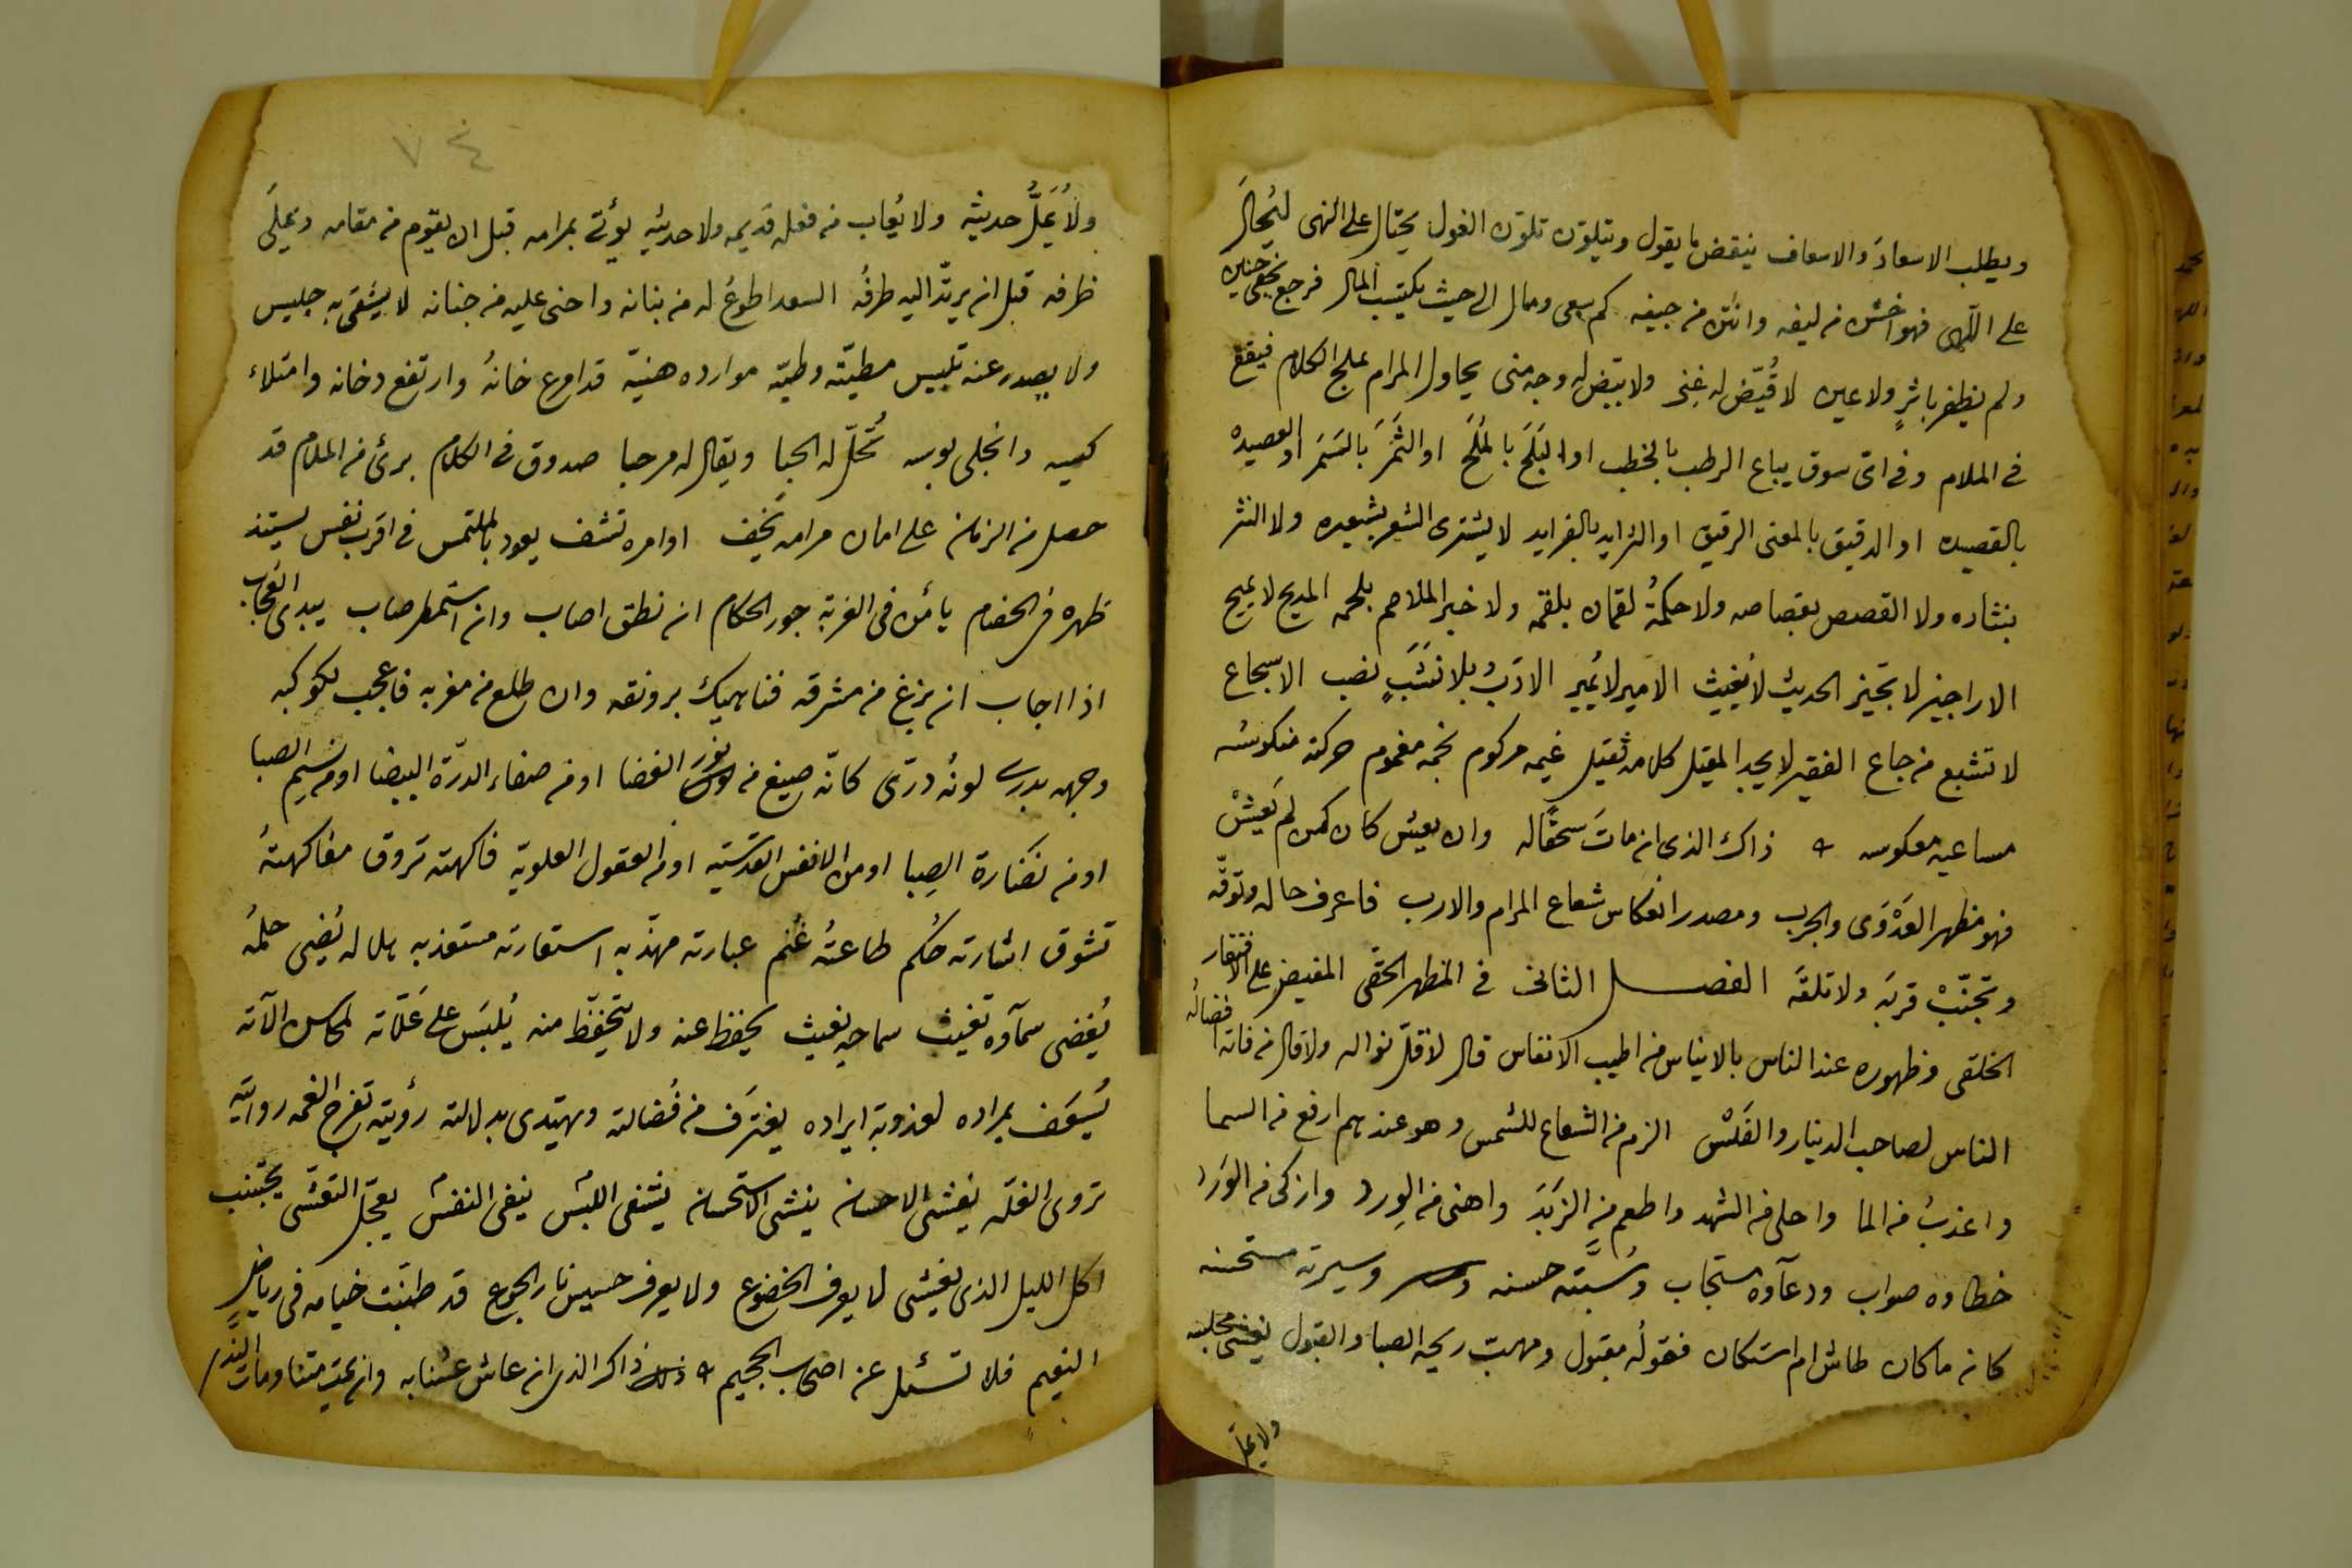 ويطلب الاسعادَ والاسعاف ينقض ما يقول ويتلوّن تلوّن الغول يحتال على النهى ليُحالَ
على اللهى فهو اخشن من ليفه وانتن من جيفه كم سعى ومال الى حيث يكتسب المال فرجع بخفى حنين
ولم يظفر باثرٍ ولا عين لا قُيّض له غنى ولا بيّض له وجه منى يحاول المرام بملح الكلام فيقع
فى الملام وفى اى سوق يباع الرطب بالخطب او البَلَح بالمُلَح او الثَمَر بالسَمَر او العصيدهْ
بالقصيده او الدقيق بالمعنى الرقيق او الثرايد بالفرايد لا يشترى الشعر بشعيره ولا النثر
بنثاره ولا القصص بقصاصه ولا حكمةُ لقمان بلقمه ولا خبر الملاحم بلحمه المديح لا يميح
الاراجيز لا تجيز الحديث لا يُغيث الامير لا يُمير الادَبُ بلا نَشَبٍ نصب الاسجاع
لا تشبع من جاع الفقير لا يجد المقيل كلامه ثقيل غيمه مركوم نجمه مغموم حركته منكوسه
مساعيه معكوسه ذاك الذى ان ماتَ سحقًا له وان يعش كان كمن لم يَعِشْ
فهو مظهر العَدْوَى والجرب ومصدر انعكاس شعاع المرام والارب فاعرف حاله وتوقّه
وتجنّبْ قربَه ولا تلقَه الفصل الثانى فى المظهر الحقى المفيض على الافتقار
الخلقى وظهوره عند الناس بالايناس من اطيب الانفاس قال لا قلّ نواله ولا قال من فاته افضالُه
الناس لصاحب الدينار والفَلْس الزم من الشعاع للشمس وهو عندهم ارفع من السما
واعذبُ من الما واحلى من الشهد واطعم من الزَبَدَ واهنى من الوِرد وازكى من الوَرَد
خطاوه صواب ودعآوه مستجاب وسُبَّته حسنه وسيرته مستحسنه
كانه ما كان طاش ام استكان فقولُه مقبول ومهبّ ريحه الصبا والقبول يغشى مجلسه
ولا يملّ
٧٤
ولا يُمَلُّ حديثه ولا يُعاب من فعله قديمه ولا حديثه يؤتى بمرامه قبل ان يقوم من مقامه ويملى
ظرفه قبل ان يرتدّ اليه طرفُه السعد اطوعُ له من بنانه واحنى عليه من جنانه لا يشقى به جليس
ولا يصدر عنه تلبيس مطيّته وطيّه موارده هنيّه قد امرع خانهُ وارتفع دخانه وامتلاء
كيسه وانجلى بوسه تُحلّ له الحبا ويقال له مرحبا صدوق فى الكلام برئ من الملام قد
حصل من الزمان على امان مرامه اوامره تشف يعود بالملتمس فى اقرب نفس يستند
ظهره فى الخصام يأمن فى الغربة جور الحكام ان نطق اصاب وان استمطر صاب يبدى العجاب
اذا اجاب ان بزغ من مشرقه فناهيك برونقه وان طلع من مغربه فاعجب لكوكبه
وجهه بدرى لونُه درّى كانّه صيغ من نور الفضا او من صفاء الدرّة البيضا او من نسيم الصبا
او من نضارة الصِبا او من الانفس القدسّيه او من العقول العلويّه فاكهته تروق مفاكهتهُ
تشوق اشارته حُكم طاعتهُ غُنم عبارته مهذّبه استعارته مستعذبه هلاله يُضى حلمُه
يُغضى سمآوه تغيث سماحه يغيث يحفظ عنه ولا يتحفّظ منه يُلبَس على عَلّاته لمحاسن الآته
يُسعَف بمراده لعذوبة ايراده يغترَف من فُضالته ويهتدى بدلالته رؤيته تفرج الغمه روايته
تروى الغلّه يغشى الاحسان ينشى الاستحسان يشفى اللبْس ينفى النفسْ يعجّل التعشى يجتنب
اكل الليل الذى يغشى لا يعرف الخضوع ولا يعرف حسيس نار الجوع قد طنّبت خيامه فى رياض
النعيم فلا تسئل عن اصحاب الجحيم ذاك الذى ان عاش عشنا به وان يمت متنا ومات النَّدى